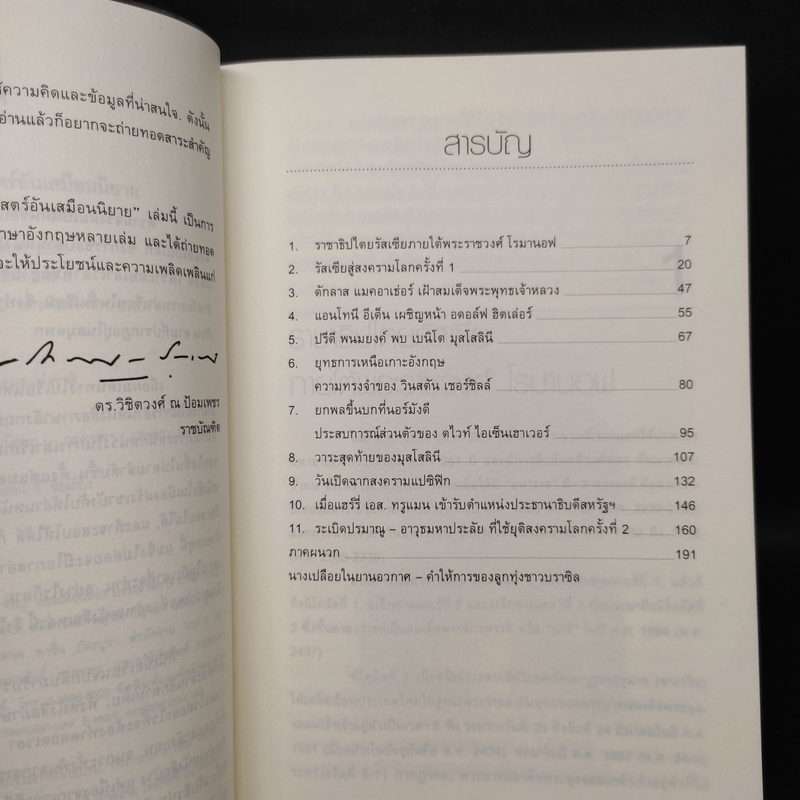 ความคิดและข้อมูลที่น่าสนใจ. ดังนั้น
อ่านแล้วก็อยากจะถ่ายทอดสาระสำคัญ
สตร์อันเสมือนนิยาย" เล่มนี้ เป็นการ
ภาษาอังกฤษหลายเล่ม และได้ถ่ายทอด
จะให้ประโยชน์และความเพลิดเพลินแก่
ดร.วิชิตวงศ์ ณ ป้อมเพชร
ราชบัณฑิต
สารบัญ
1. ราชาธิปไตยรัสเซียภายใต้พระราชวงศ์ โรมานอฟ 7
2. รัสเซียสู่สงครามโลกครั้งที่ 1 20
3. ดักลาส แมคอาเธ่อร์ เฝ้าสมเด็จพระพุทธเจ้าหลวง 47
4. แอนโทนี อีเด็น เผชิญหน้า อดอล์ฟ ฮิตเล่อร์ 55
5. ปรีดี พนมยงค์ พบ เบนิโต มุสโสลินี 67
6. ยุทธการเหนือเกาะอังกฤษ
ความทรงจำของ วินสตัน เชอร์ชิลล์ 80
7. ยกพลขึ้นบกที่นอร์มังดี
ประสบการณ์ส่วนตัวของ ดไวท์ ไอเซ็นเฮาเวอร์ 95
8. วาระสุดท้ายของมุสโสลินี 107
9. วันเปิดฉากสงครามแปซิฟิก 132
10. เมื่อแฮร์รี่ เอส. ทรูแมน เข้ารับตำแหน่งประธานาธิบดีสหรัฐฯ 146
11. ระเบิดปรมาณู – อาวุธมหาประลัย ที่ใช้ยุติสงครามโลกครั้งที่ 2 160
ภาคผนวก 191
นางเปลือยในยานอวกาศ – คำให้การของลูกทุ่งชาวบราซิล